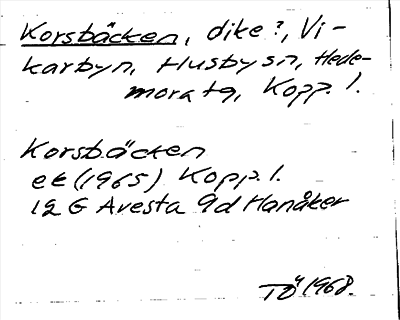 Korsbäcken, dike?, Vi-
karbyn, Husby sn, Hede-
mora tg, Kopp. l.
Korsbäcken
ek (1965) Kopp. l.
12 G Avesta 9d Hanåker
TÖ 1968.